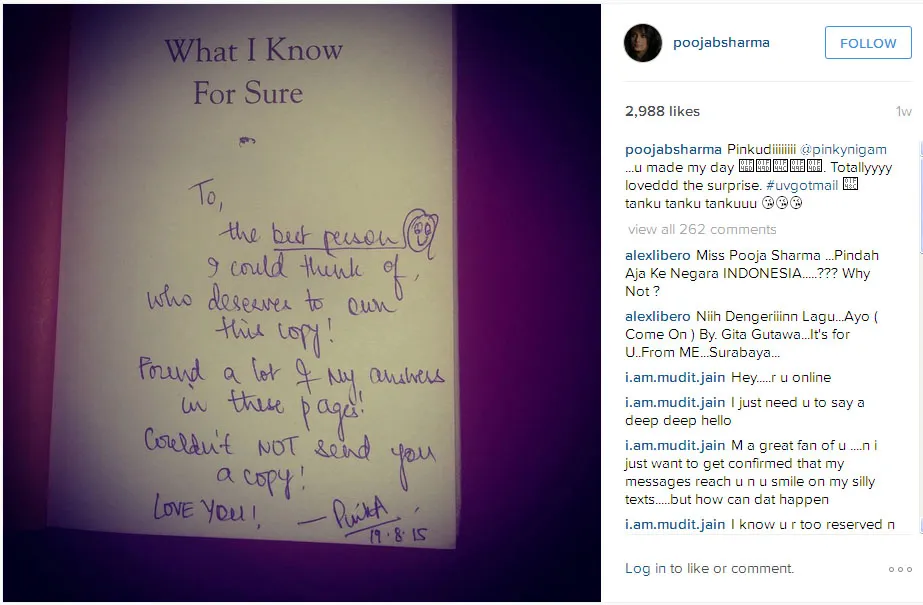 What I Know
For Sure
To,
the best person
I could think of,
who deserves to own
this copy!
Found a lot of my answers
in these pages!
Couldn't NOT send you
a copy!
LOVE YOU!
19.8.15
poojabsharma
FOLLOW
2,988 likes
1w
poojabsharma Pinkudiiiiiiii @pinkynigam
...u made my day . Totallyyyy
loveddd the surprise. #uvgotmail
tanku tanku tankuuu 😘😘😘
view all 262 comments
alexlibero Miss Pooja Sharma ...Pindah
Aja Ke Negara INDONESIA.....??? Why
Not ?
alexlibero Niih Dengeriiinn Lagu...Ayo (
Come On ) By. Gita Gutawa...It's for
U..From ME...Surabaya...
i.am.mudit.jain Hey.....r u online
i.am.mudit.jain I just need u to say a
deep deep hello
i.am.mudit.jain M a great fan of u ....n i
just want to get confirmed that my
messages reach u n u smile on my silly
texts.....but how can dat happen
i.am.mudit.jain I know u r too reserved n
Log in to like or comment.